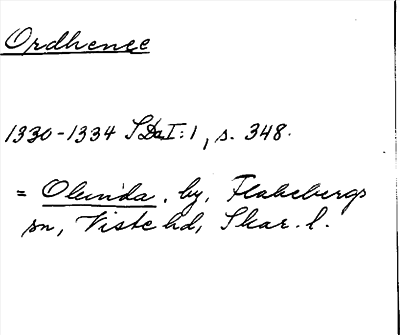 Ordhence
1330-1334 SDa I:1, s. 348.
= Olunda, by, Flakebergs
sn, Viste hd, Skar. l.